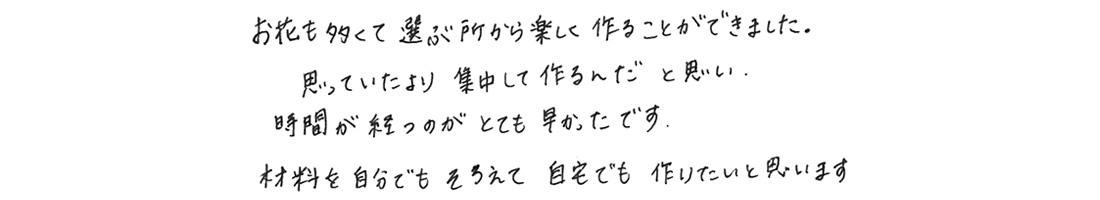 お花も多くて 選ぶ所から楽しく 作ることができました。
思っていたより 集中して作るんだ と思い.
時間が 経つのが とても 早かったです.
材料を自分でも そろえて 自宅でも 作りたいと思います